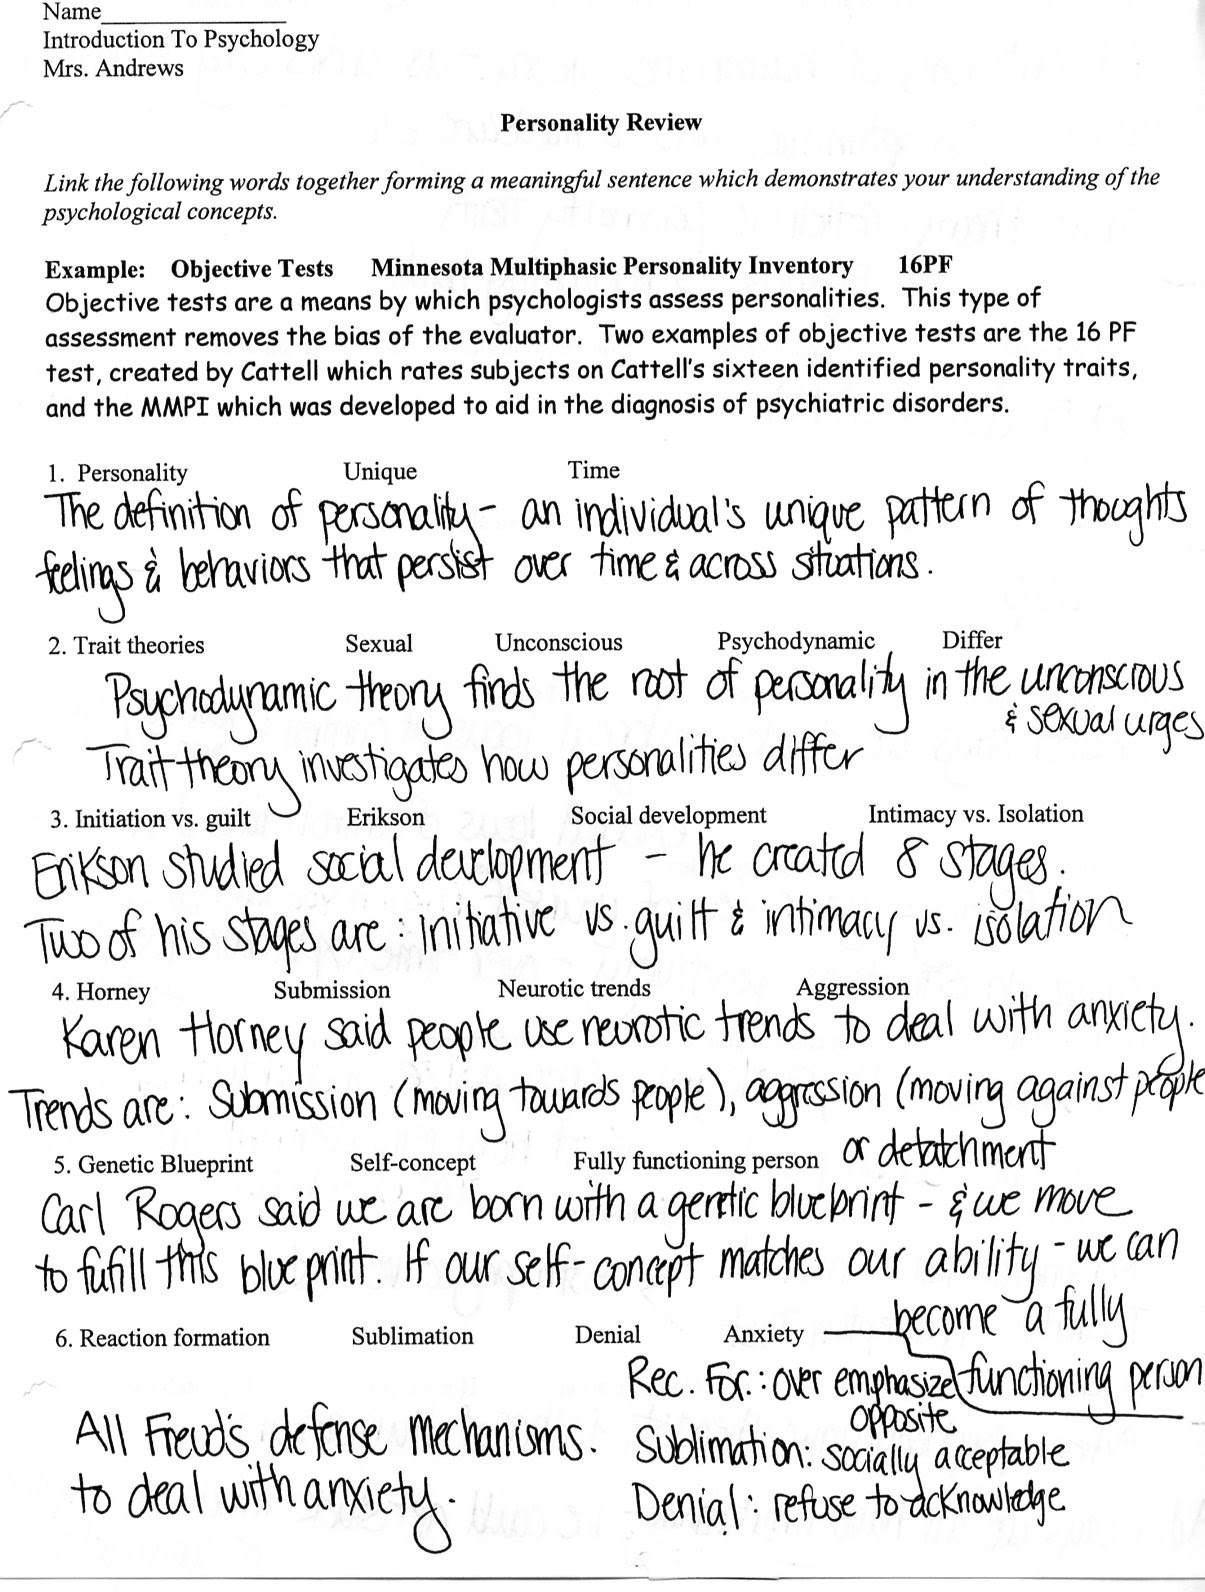 Name_______________
Introduction To Psychology
Mrs. Andrews
Personality Review
Link the following words together forming a meaningful sentence which demonstrates your understanding of the
psychological concepts.
Example: Objective Tests Minnesota Multiphasic Personality Inventory 16PF
Objective tests are a means by which psychologists assess personalities. This type of
assessment removes the bias of the evaluator. Two examples of objective tests are the 16 PF
test, created by Cattell which rates subjects on Cattell's sixteen identified personality traits,
and the MMPI which was developed to aid in the diagnosis of psychiatric disorders.
1. Personality Unique Time
The definition of personality- an individual's unique pattern of thoughts
feelings & behaviors that persist over time & across situations.
2. Trait theories Sexual Unconscious Psychodynamic Differ
Psychodynamic theory finds the root of personality in the unconscious
& sexual urges
Trait theory investigates how personalities differ
3. Initiation vs. guilt Erikson Social development Intimacy vs. Isolation
Erikson studied social development - he created 8 stages.
Two of his stages are: initiative vs. guilt & intimacy vs. isolation
4. Horney Submission Neurotic trends Aggression
Karen Horney said people use neurotic trends to deal with anxiety.
Trends are: Submission (moving towards people), aggression (moving against people
or detatchment
5. Genetic Blueprint Self-concept Fully functioning person
Carl Rogers said we are born with a genetic blueprint - & we move
to fufill this blueprint. If our self-concept matches our ability - we can
become a fully
functioning person
6. Reaction formation Sublimation Denial Anxiety
All Freud's defense mechanisms.
to deal with anxiety.
Rec. For.: over emphasize
opposite
Sublimation: socially acceptable
Denial: refuse to acknowledge